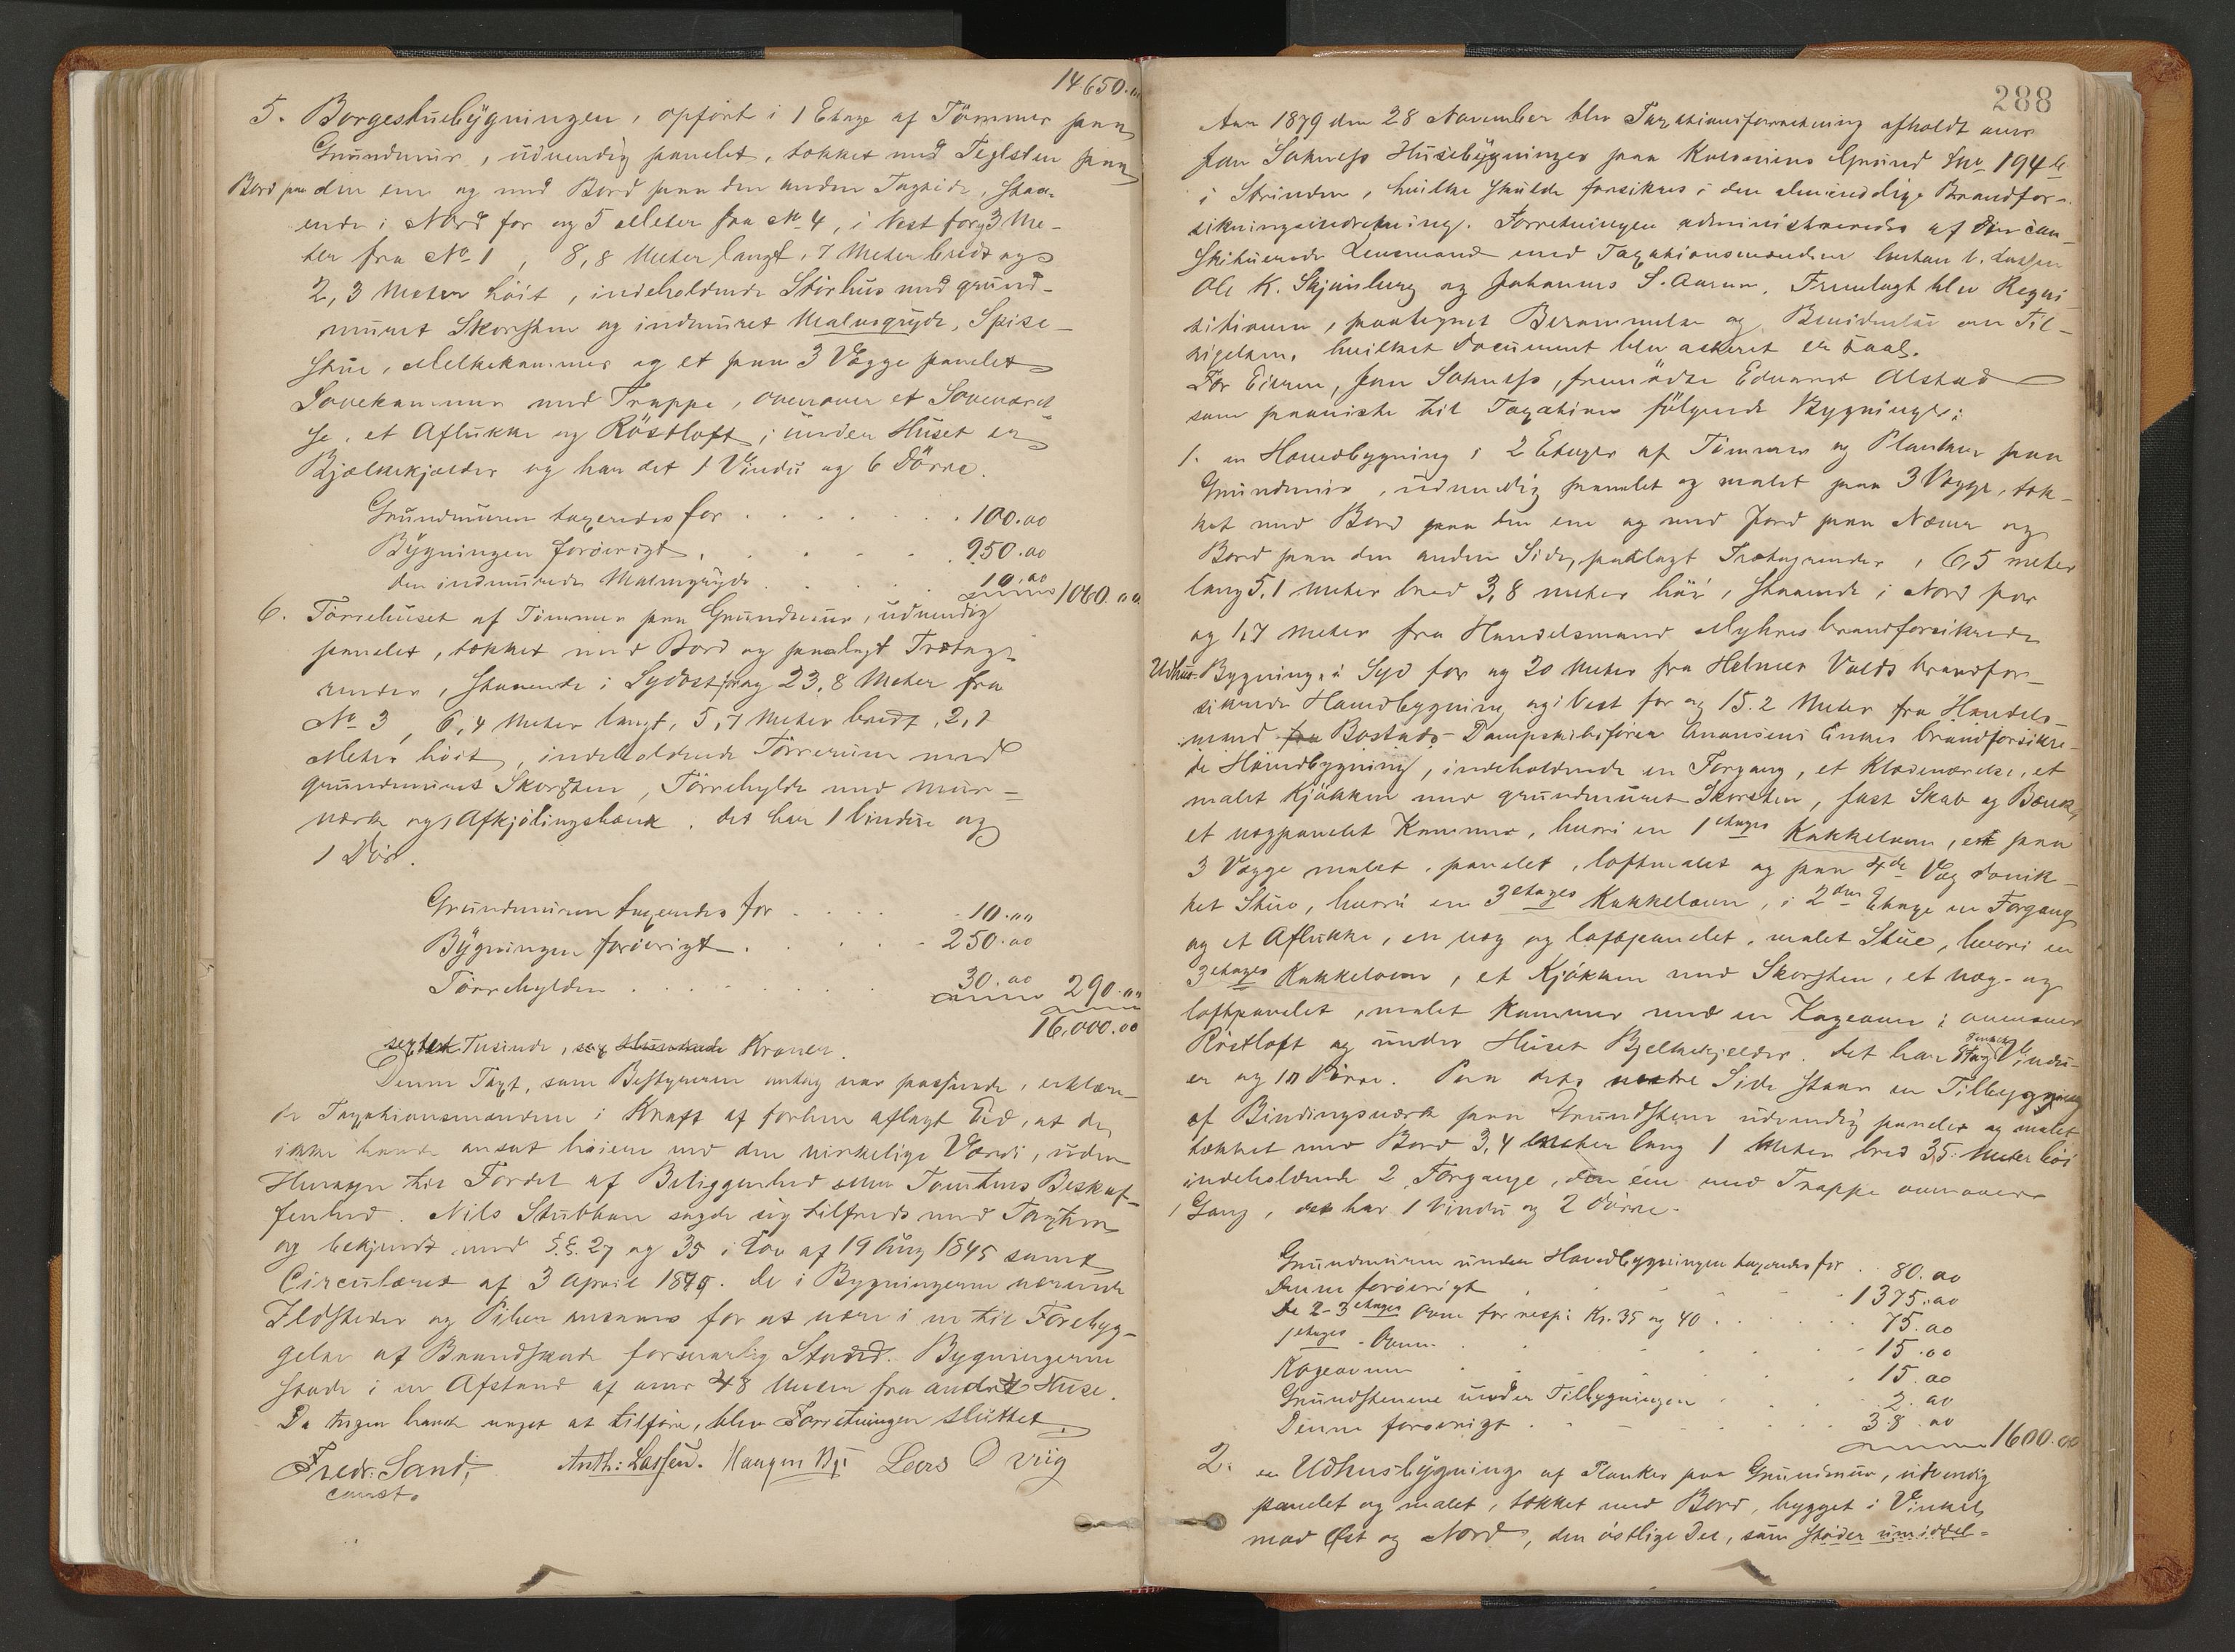 14650.00
5. Borgestuebygningen, opført i 1 Etage af Tømmer paa
Grundmuur, udvendig panelet, tækket med Teglsten paa
Bord paa den ene og med Bord paa den anden Tagside, staa-
ende i Nord for og 5 Meter fra No 4, i Vest for og 3 Me-
ter fra No 1, 8,8 Meter langt, 7 Meter bredt og
2,3 Meter høit, indeholdende Størhus med grund-
muret Skorsten og indmuret Malmgryde, Spise-
stue, Melkekammer og et paa 3 Vægge panelet
Sovekammer med Trappe, ovenover et Soveværel-
se, et Aflukke og Röstloft; under Huset er
Bjælkekjælder og har det 1 Vindu og 6 Dörre.
Grundmuren taxeredes for 100.00
Bygningen forøvrigt 950.00
den indmurede Malmgryde 10.00
1060.00
6. Tørrehuset af Tömmer paa Grundmuur, udvendig
panelet, tækket med Bord og paalagt Trætag-
render, staaende i Sydost for og 23,8 Meter fra
No 3, 6,4 Meter langt, 5,7 Meter bredt, 2,7
Meter höit, indeholdende Törrerum med
grundmuret Skorsten, Törrehylde med Muur-
værk og 1 Afkjölingsbænk. det har 1 Vindu og
1 Dør.
Grundmuren taxeredes for 10.00
Bygningen forøvrigt 250.00
Törrehylden 30.00
290.00
16,000.00
sexten Tusinde, Kroner.
Denne Taxt, som Bestyreren antog var passende, erklære-
de Taxationsmændene i Kraft af forhen aflagt Eed, at de
ikke havde ansat høiere end den virkelige Værdi, uden
Hensyn til Fordel af Beliggenhed eller Tomtens Beskaf-
fenhed. Nils Stubban sagde sig tilfreds med Taxten
og bekjendt med §.§. 27 og 35 i Lov af 19 Aug 1845 samt
Circulæret af 3 April 1879. De i Bygningerne værende
Ildsteder og Piber ansaaes for at være i en til Forebyg-
gelse af Brandskade forsvarlig Stand. Bygningerne
staae i en Afstand af over 48 Meter fra andres Huse.
Da Ingen havde noget at tilføre, blev Forretningen sluttet
Fredr. Sand, Anth: Lassen. Haugen Lars Øviig
const.
288
Aar 1879 den 28 November blev Taxationsforretning afholdt over
Jon Huusebygninger paa Grund Lno 194
i Strinden, hvilke skulde forsikres i den almindelige Brandfor-
sikringsindretning. Forretningen administreredes af den con-
stituerede Lensmand med Taxationsmændene Lassen
Ole K. Skjønberg og Johannes S. Fremlagt blev Reqvi-
sitionen, paategnet Berammelse og Bevidnelse om Til-
sigelsen, hvilket Document blev acteret
For Eieren, Jon, fremødte Edvard Alstad
som paaviste til Taxation følgende Bygninger:
1. en Hovedbygning i 2 Etager af Tømmer og Planker paa
Grundmuur, udvendig panelet og malet paa 3 Vægge, tæk-
ket med Bord paa den ene og med Jord paa Næver og
Bord paa den anden Side, paalagt Trætagrender, 6,5 meter
lang 5,1 meter bred 3,8 meter høi, staaende i Nord for
og 1,7 meter fra Handelsmand Myhres brandforsikrede
Udhus-Bygning, i Syd for og 20 Meter fra Helmer Volds brandfor-
sikrede Hovedbygning og i Vest for og 15.2 Meter fra Handels-
mand fra Bostads - Dampskibsfører Enkes brandforsikre-
de Hovedbygning, indeholdende en Forgang, et Klædeværelse, et
malet Kjökken med grundmuret Skorsten, fast Skab og Bænk,
et vægpanelet Kammer, hvori en 1 etages Kakkelovn, et paa
3 Vægge malet, panelet, loftmalet og paa 4de Væg
ket Stue, hvori en 3 etages Kakkelovn, i 2den Etage en Forgang
og et Aflukke, en væg og loftpanelet, malet Stue, hvori en
3 etages Kakkelovn, et Kjökken med Skorsten, et væg- og
loftpanelet, malet Kammer med en Kogeovn; ovenover
Röstloft og under Huset Bjelkekjelder. det har Vindu-
er og 10 Dörre. Paa dets vestre Side staar en Tilbygning
af Bindingsværk paa Grundstene udvendig panelet og malet
tækket med Bord 3,4 Meter lang 1 Meter bred 3,5 Meter høi
indeholdende 2 Forgange, den ene med Trappe ovenover
1 Gang, det har 1 Vindu og 2 Dörre.
Grundmuren under Hovedbygningen taxeredes for 80.00
Denne forøvrigt 1375.00
De 2-3 etages Ovne for resp: Kr. 35 og 40 75.00
1 etages - Ovnen 15.00
Kogeovnen 15.00
Grundstenene under Tilbygningen 2.00
Denne forøvrigt 38.00
1600.00
2. en Udhusbygning af Planker paa Grundmuur, udvendig
panelet og malet, tækket med Bord, bygget i Vinkel
mod Øst og Nord, den østlige Del, som støder umiddel-